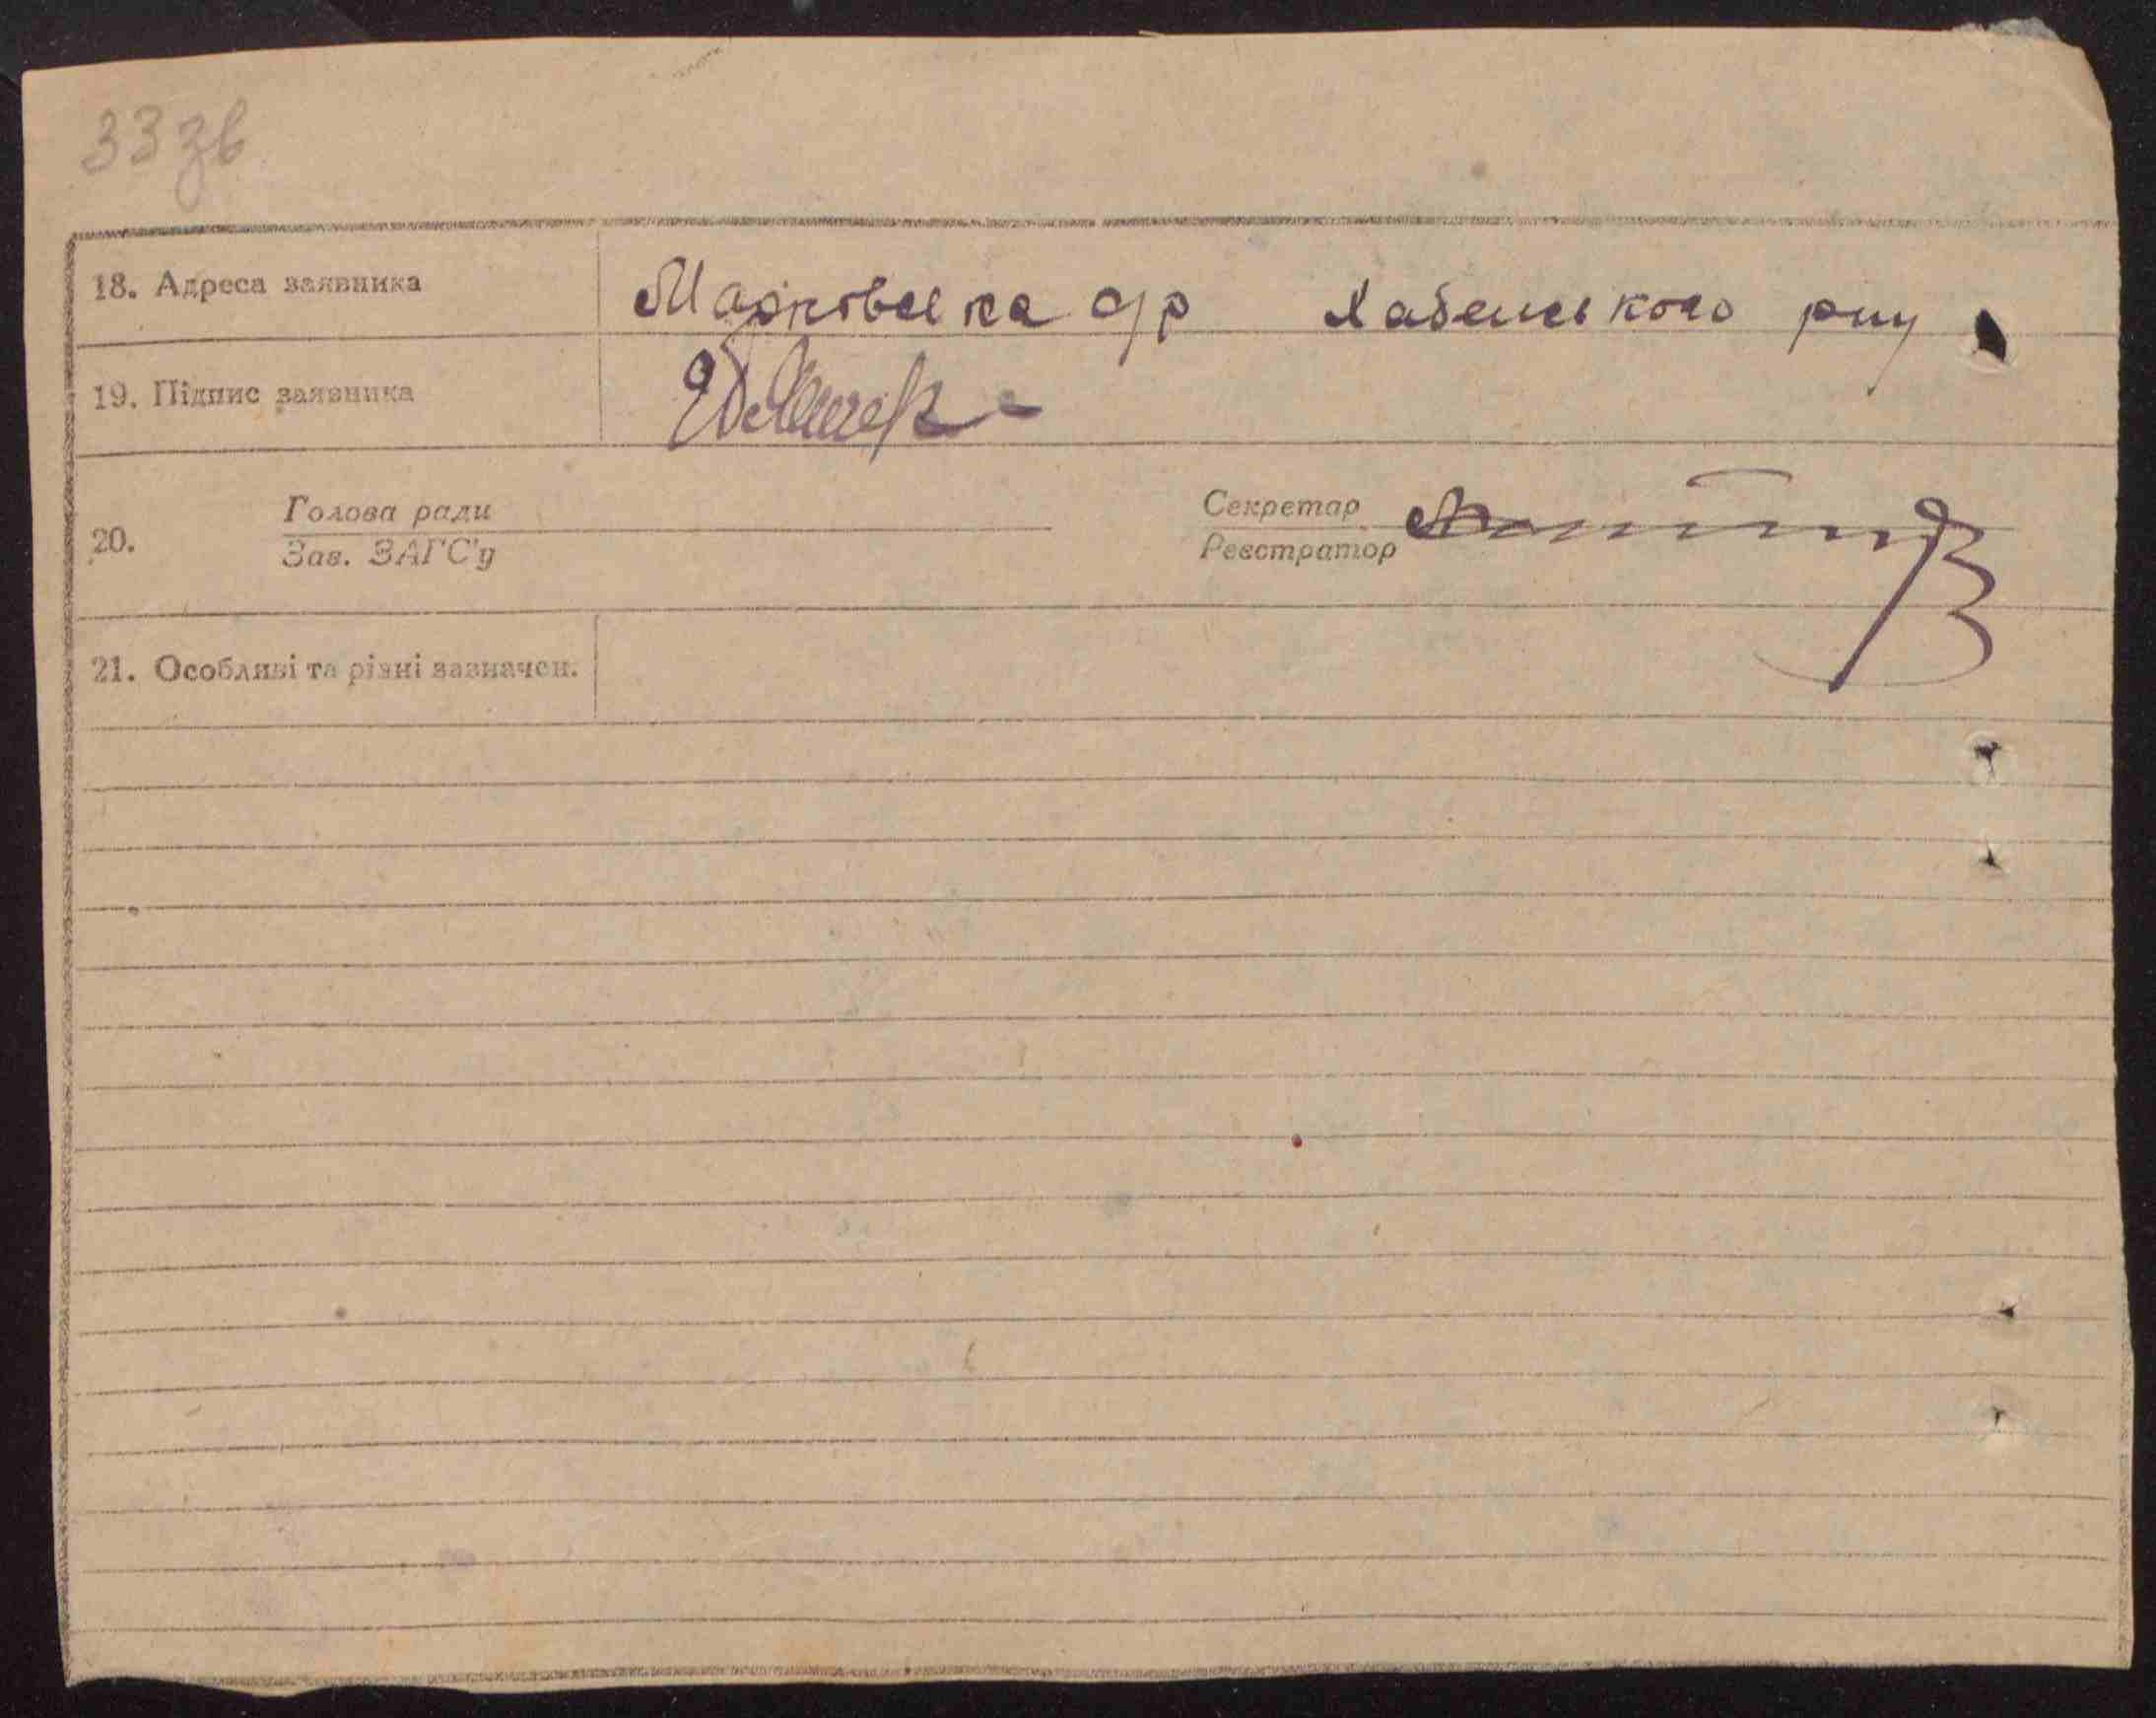 33 зв
18. Адреса заявника Марковська с/р Хабенського р-ну
19. Підпис заявника
20. Голова ради Секретар
Зав. ЗАГС'у Реєстратор
21. Особливі та різні зазначен.